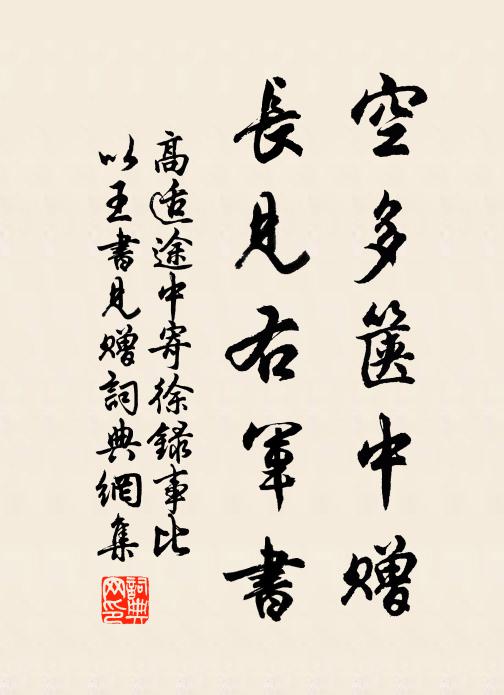 空多箧中贈
長見右軍書
高适途中寄徐録事比
以王書見贈詞典網集
詞典
网印